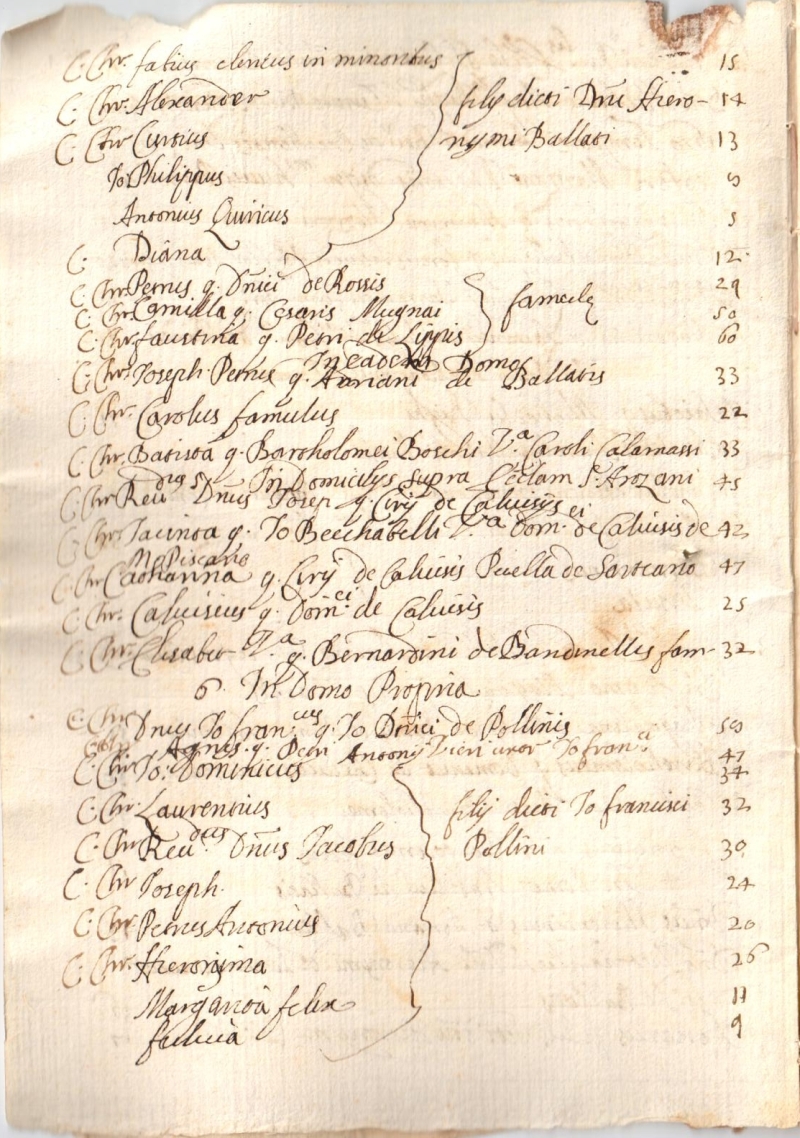 C. Chr. fabius clericus in minoribus 15
C. Chr. Alexander filij dicti Dni Hiero- 14
C. Chr Curtius nymi Ballati 13
Jo Philippus 9
Antonius Quiricus 5
C. Diana 12
C. Chr. Petrus q. Dnici de Rossis 29
C. Chr. Camilla q. Cesaris Mugnai famule 50
C. Chr. faustina q. Petri de Lippis 60
In eadem Domo
C. Chr. Joseph Petrus q. Adriani de Ballatis 33
C. Chr. Carolus famulus 22
C. Chr. Batista q. Bartholomei Boschi V.a Caroli Calamassi 33
In Domicilijs supra Ecclam S.
C. Chr Reu dus Dnus Josep q. Cirij de Caluisijs 45
C. Chr. Jacinta q. Jo V.a Dom.ci de Caluisis de 42
C. Chr Catharina q. Cirij de Caluisis Puella de Sarteano 47
C. Chr. Caluisius q. Dom.ci de Caluisis 25
C. Chr. Elisabet V.a q. Bernardini de Bandinellis fam- 32
6. In Domo Propria
C. Chr Dnus Jo fran.cus q. Jo Dnici de Pollinis 59
C. Chr. Agnes q. Petri Antonij uxor Jo fran.ci 47
C. Chr Jo: Dominicus 34
C. Chr Laurentius filij dicti Jo francisci 32
C. Chr Reu.dus Dnus Jacobus Pollini 30
C. Chr Joseph. 24
C. Chr Petrus Antonius 20
C. Chr. Hieronima 26
Margarita felix 11
9